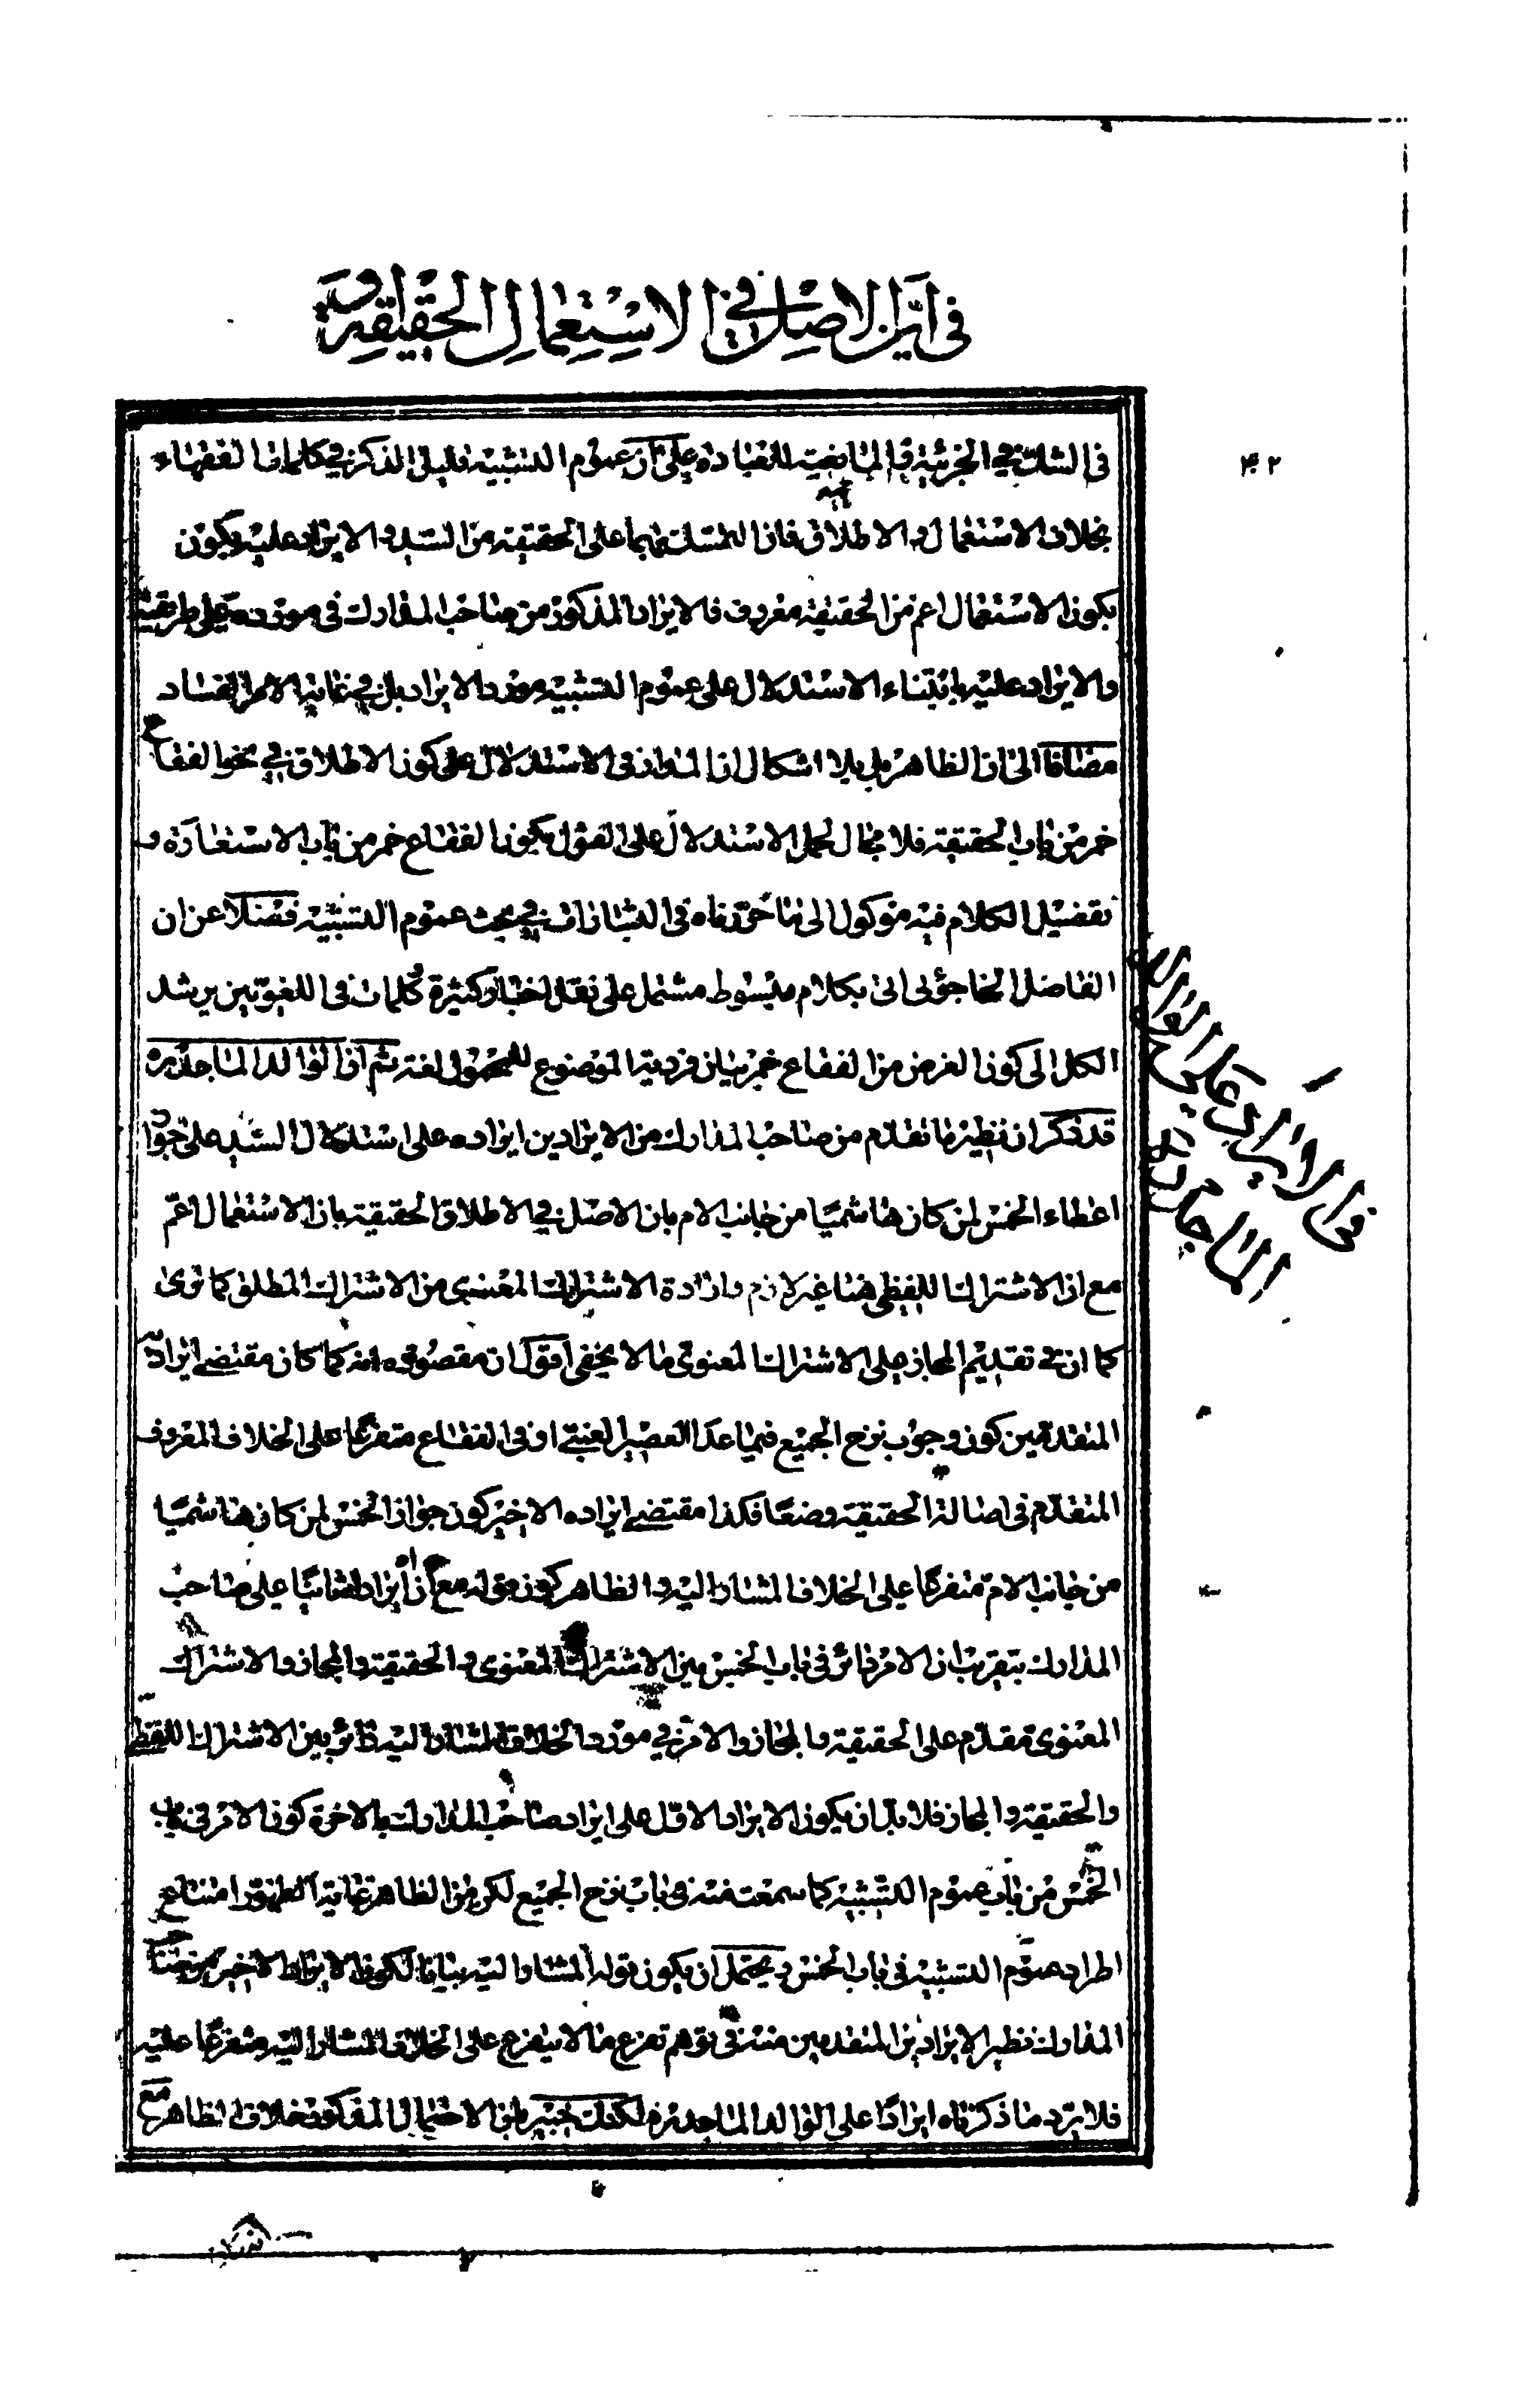 في ان الاصل في الاستعمال الحقيقة
۴۰۲
في الشك في الجزئية والمانعية للعبادة على ان عموم التشبيه قليل الذكر في كلمات الفقهاء
بخلاف الاستعمال والاطلاق فان التمسك بهما على الحقيقة من السيد والايراد عليه بكون
بكون الاستعمال اعم من الحقيقة معروف فالايراد المذكور من صاحب المدارك في مورده على طريقته
والايراد عليه بابتناء الاستدلال على عموم التشبيه مورد الايراد بل في غاية الامر الفساد
مضافا الى ان الظاهر بل بلا اشكال ان المدار في الاستدلال على كون الاطلاق في نحو الفقاع
خمر من باب الحقيقة فلا مجال لحمل الاستدلال على القول بكون الفقاع خمر من باب الاستعارة و
تفصيل الكلام فيه موكول الى ما حررناه في البشارات في بحث عموم التشبيه فضلا عن ان
الفاضل الخاجوئي اتى بكلام مبسوط مشتمل على نقل اخبار كثيرة وكلمات في اللغويين يرشد
الكل الى كون الغرض من الفقاع خمر بيان فردية الموضوع للمحمول لغة ثم ان الوالد الماجد ره
قد ذكر ان نظير ما تقدم من صاحب المدارك من الايرادين ايراده على استدلال السيد على جواز
اعطاء الخمس لمن كان هاشميا من جانب الام بان الاصل في الاطلاق الحقيقة بان الاستعمال اعم
مع ان الاشتراك اللفظي هنا غير لازم وارادة الاشتراك المعنوي من الاشتراك المطلق كما ترى
كما ان في تقديم المجاز على الاشتراك المعنوي ما لا يخفى اقول ان مقصوده انه كما كان مقتضى ايراديه
المتقدمين كون وجوب نزح الجميع فيما عدا العصير العنبي او في الفقاع متفرعا على الخلاف المعروف
المتقدم في اصالة الحقيقة وضعا فكذا مقتضى ايراده الاخير كون جواز الخمس لمن كان هاشميا
من جانب الام متفرعا على الخلاف المشار اليه والظاهر كون قوله مع ان ايرادا ثانيا على صاحب
المدارك بتقريب ان الامر دائر في باب الخمس بين الاشتراك المعنوي والحقيقة والمجاز والاشتراك
المعنوي مقدم على الحقيقة والمجاز والامر في مورد الخلاف المشار اليه دائر بين الاشتراك اللفظي
والحقيقة والمجاز فلا بد ان يكون الايراد الاول على ايراد صاحب المدارك بالاخرة كون الامر في باب
الخمس من باب عموم التشبيه كما سمعت منه في باب نزح الجميع لكن من الظاهر غاية الظهور امتناع
اطراد عموم التشبيه في باب الخمس ويحتمل ان يكون قوله المشار اليه بيانا لكون الايراد الاخير من صاحب
المدارك نظير الايرادين المتقدمين منه في توهم تفرع ما لا يتفرع على الخلاف المشار اليه متفرعا عليه
فلا يرد ما ذكرناه ايرادا على الوالد الماجد ره لكنك خبير بان الاحتمال المذكور خلاف الظاهر مع
في الايراد على الوالد
الماجد ره